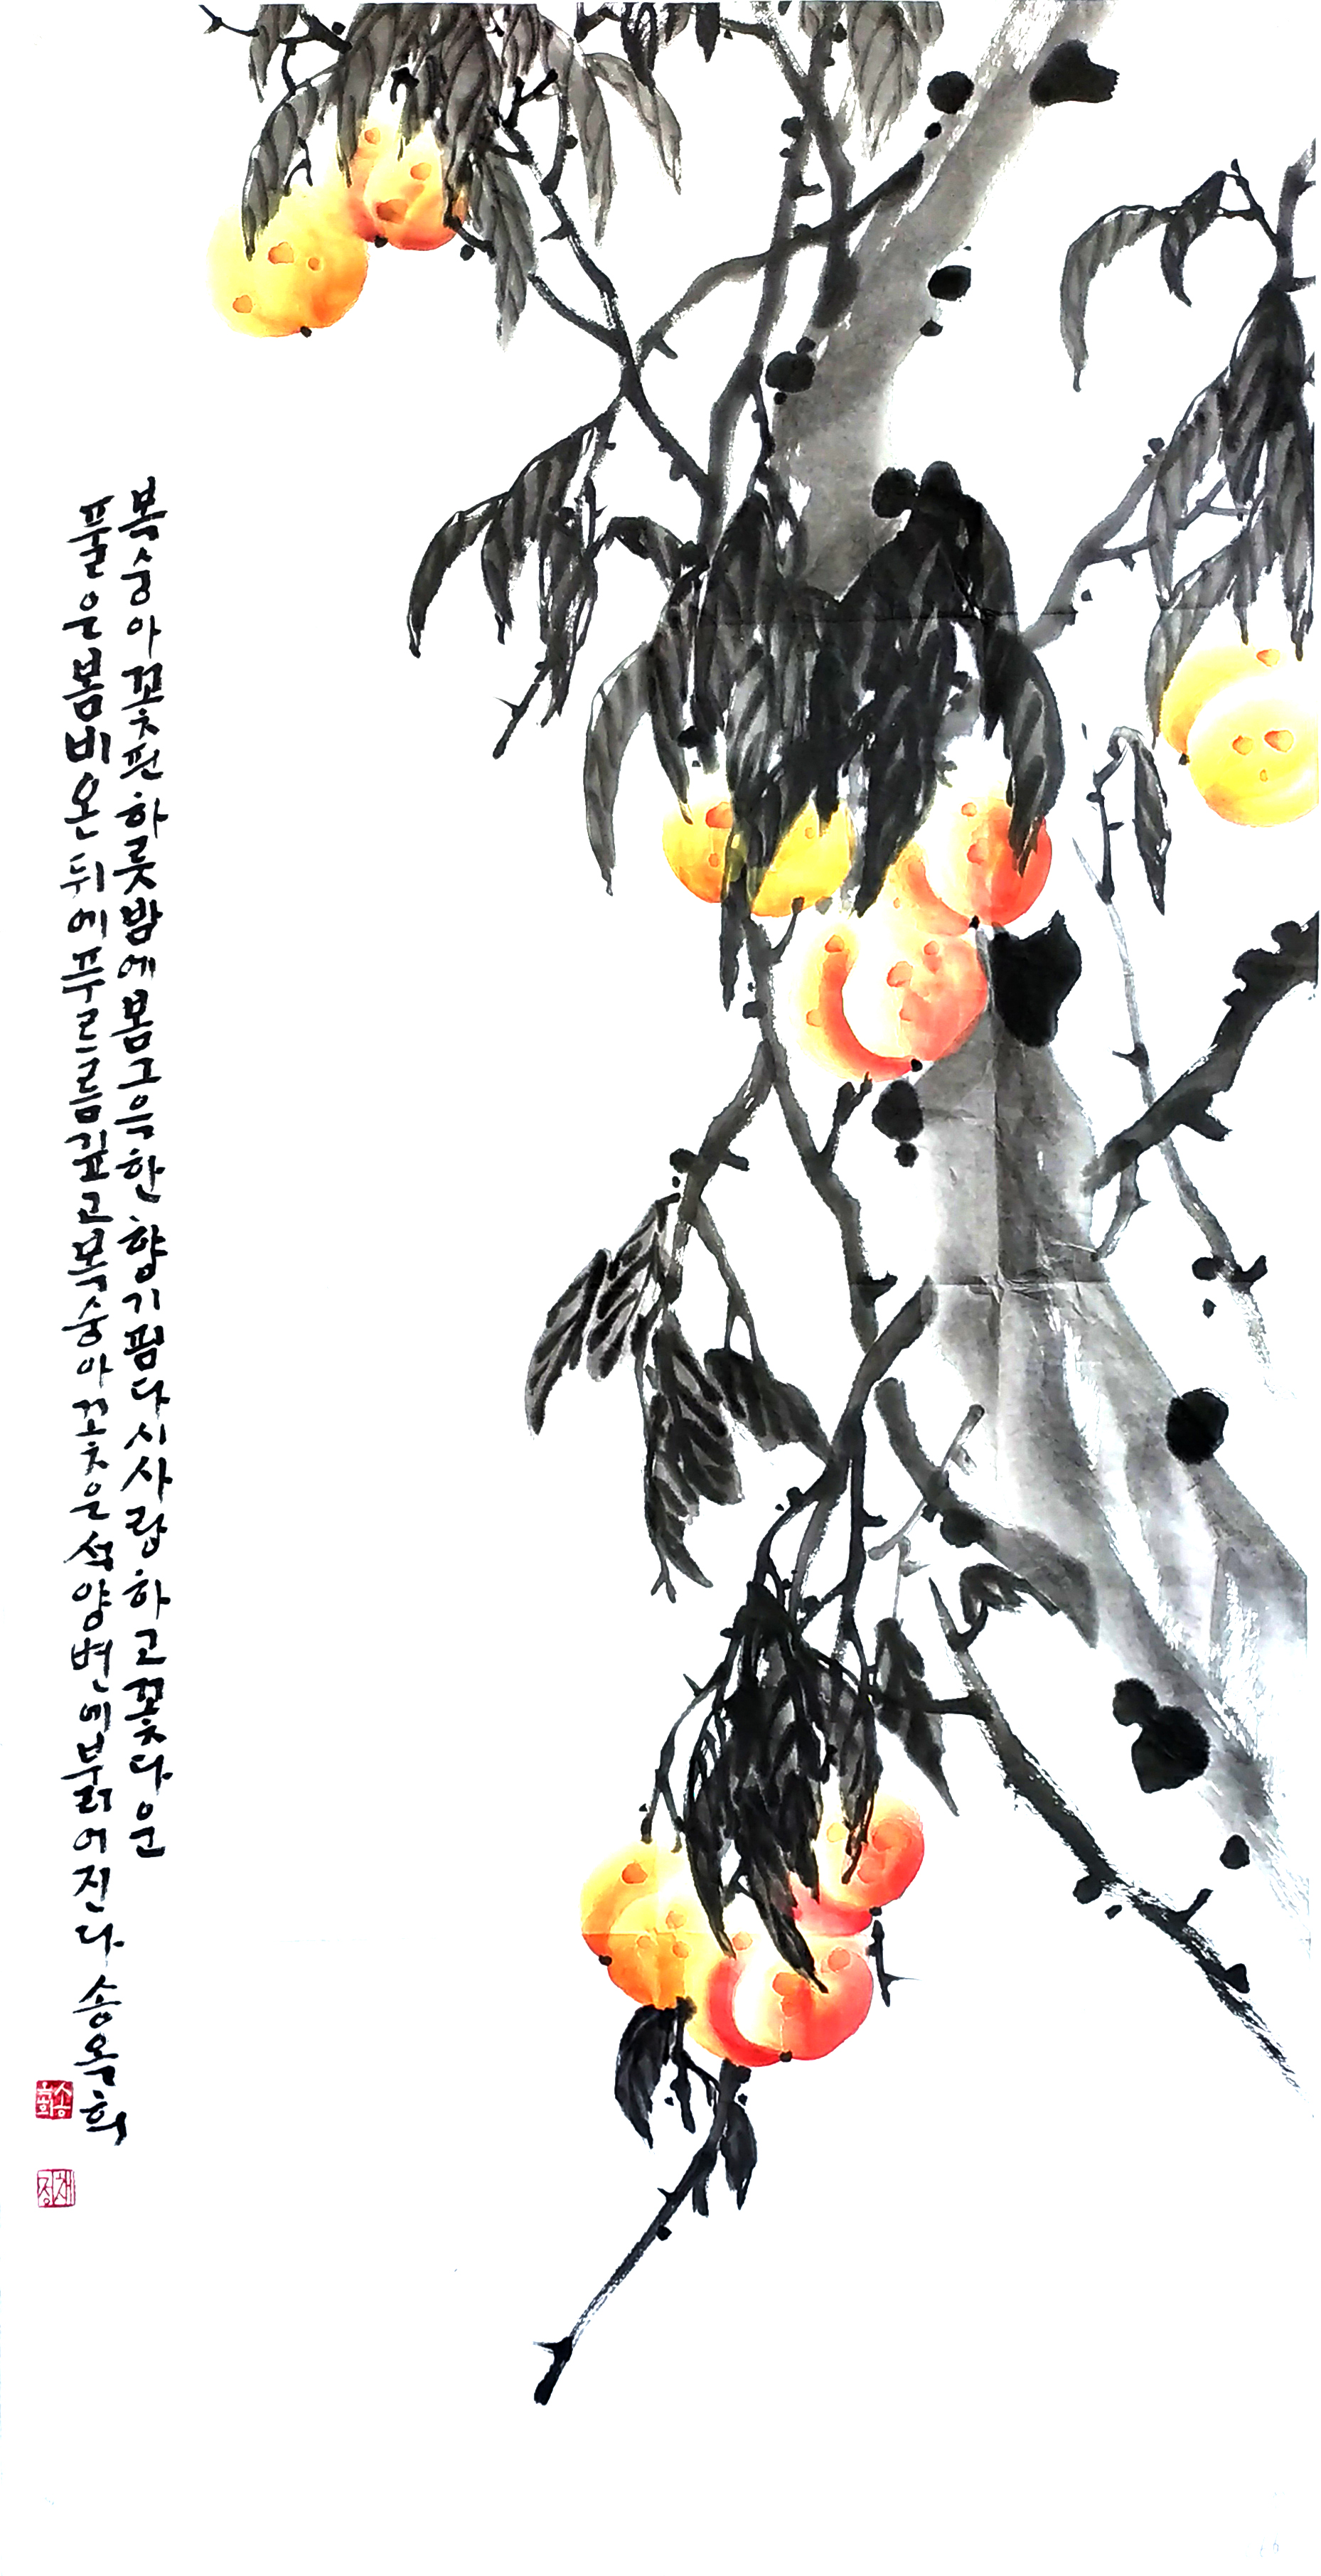 복숭아꽃핀하룻밤에봄그윽한향기핌다시사랑하고꽃다운
풀은봄비온뒤에푸르름깊고복숭아꽃은석양변에붉어진다 송옥희